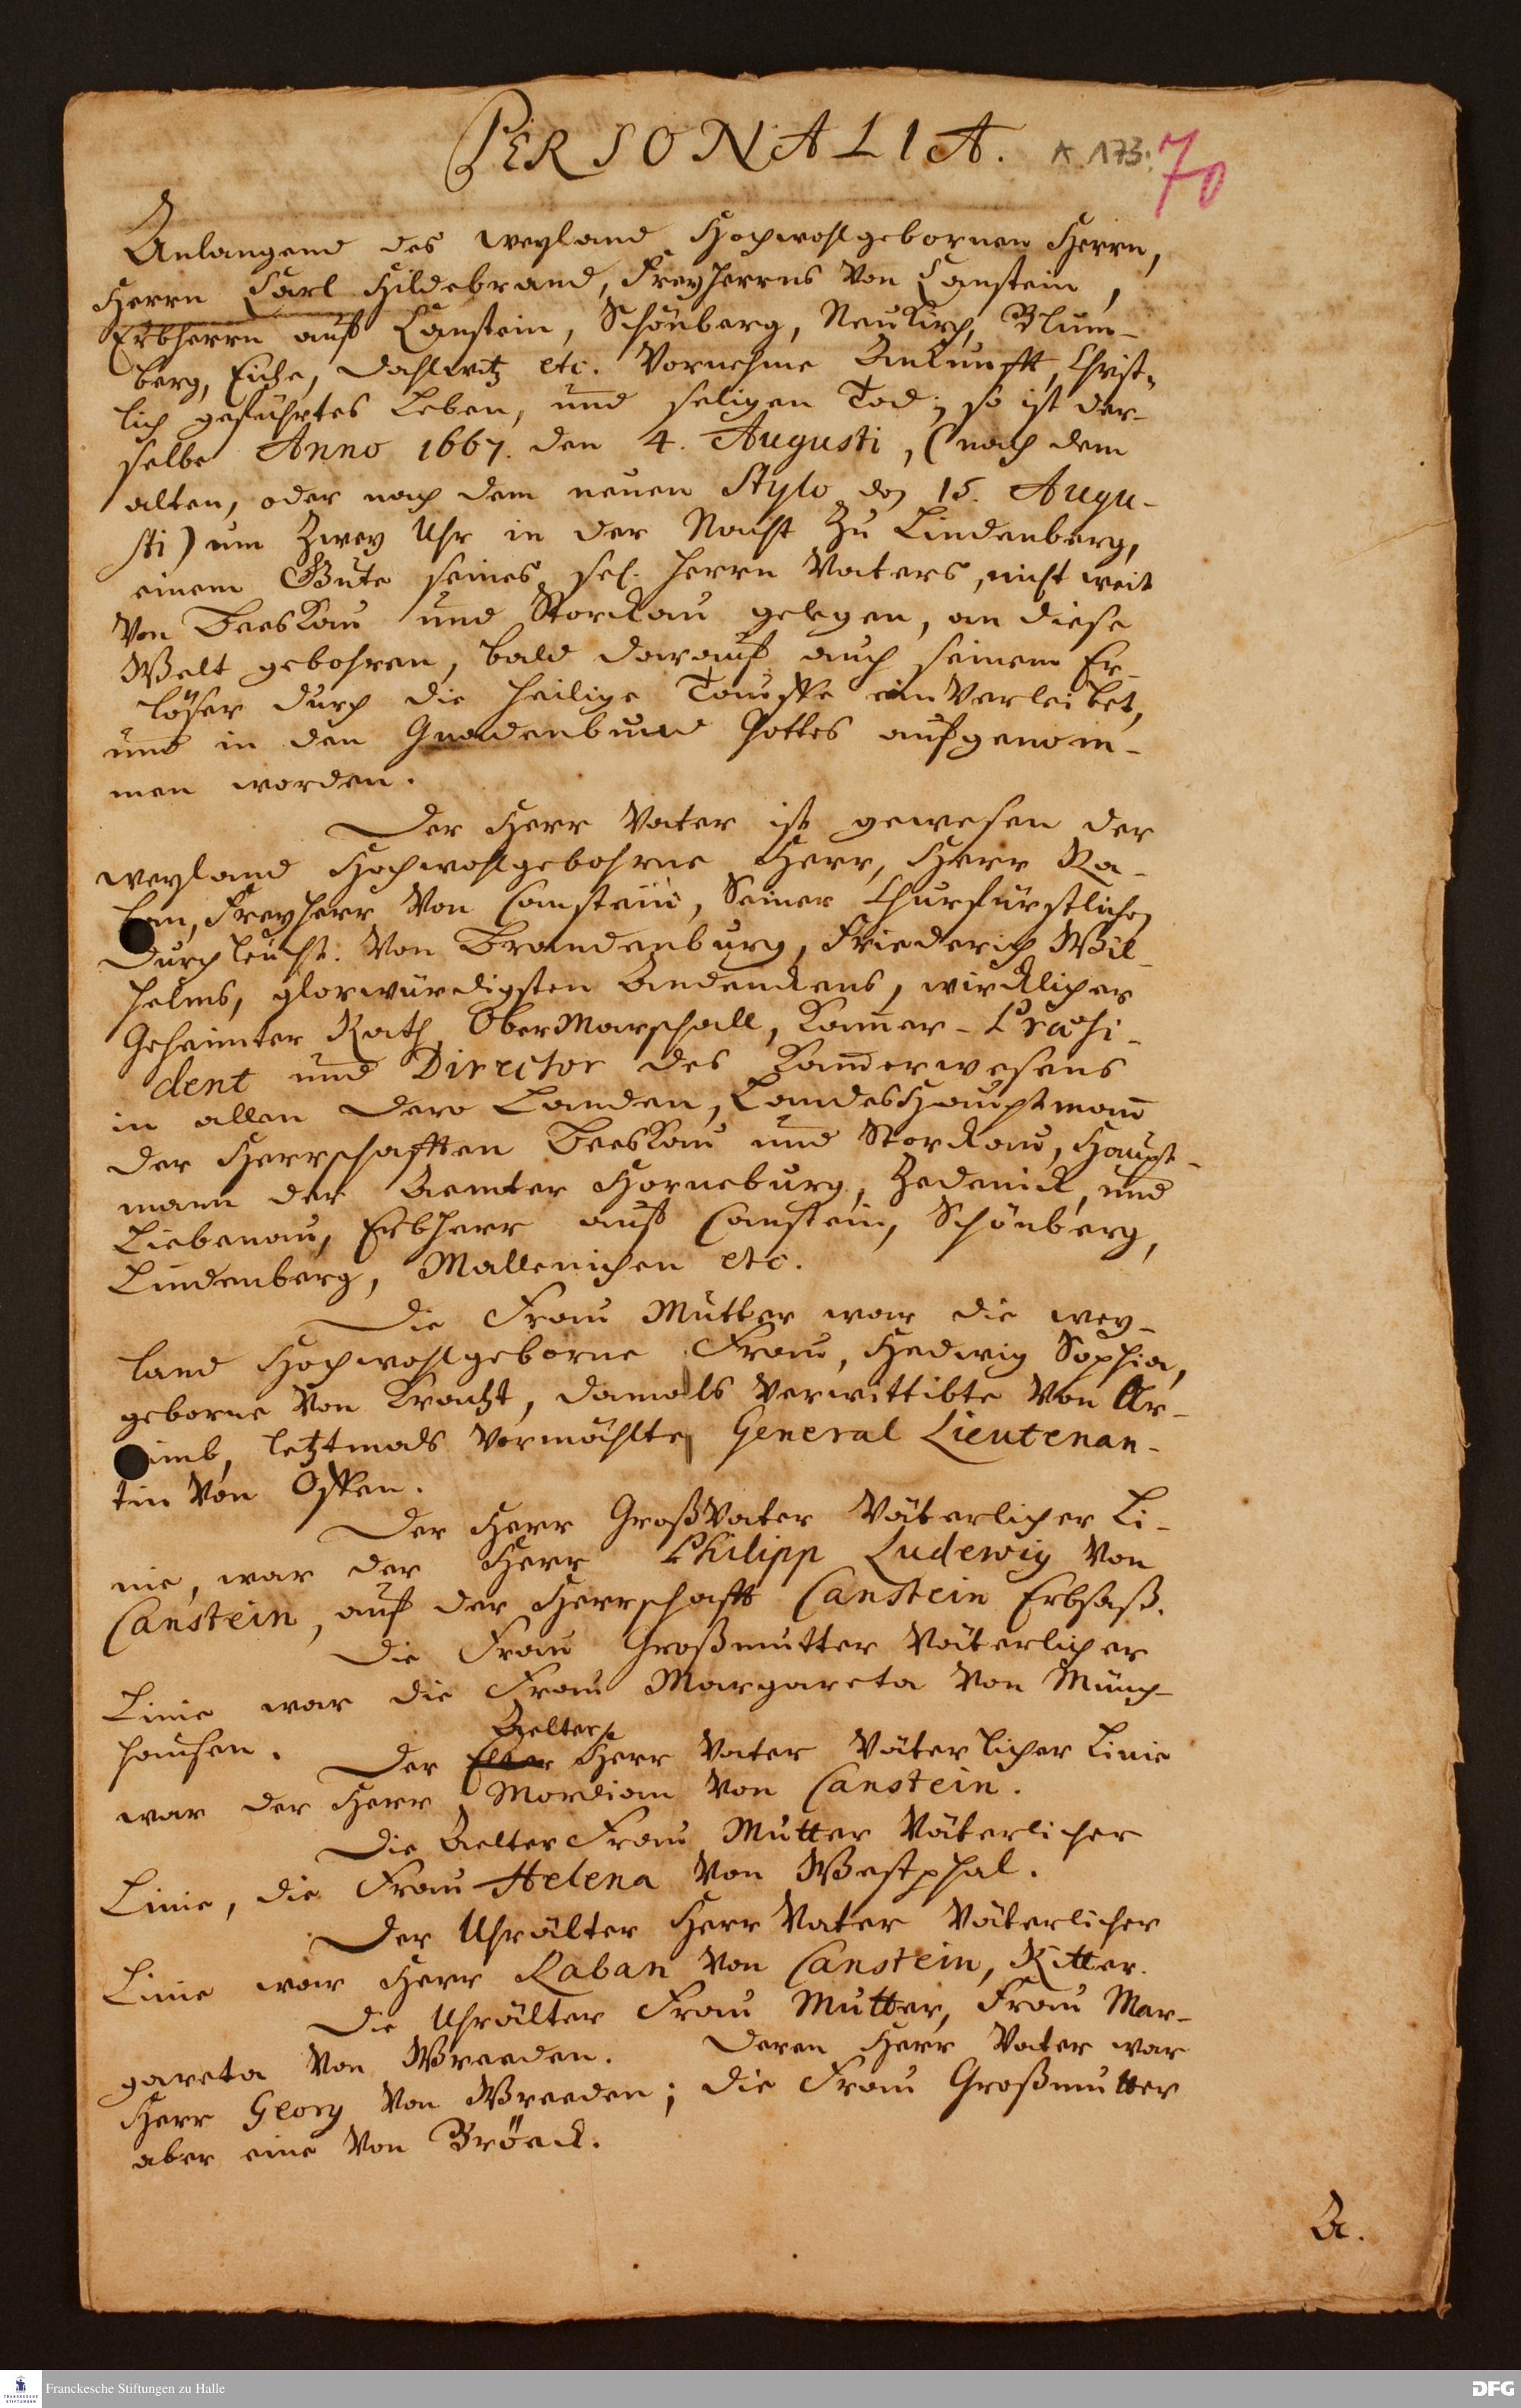 PERSONALIA. A 173: 70
Anlangend des weyland Hochwohlgebornen Herrn,
Herrn Carl Hildebrand, Freyherrns von Canstein,
Erbherrn auf Canstein, Schönberg, Neukirch, Blum-
berg, Eiche, Dahlwitz etc. Vornehme Ankunfft, Christ-
lich geführtes Leben, und seligen Tod; so ist der-
selbe Anno 1667. den 4. Augusti, (nach dem
alten, oder nach dem neuen Stylo den 15. Augu-
sti) um Zwey Uhr in der Nacht Zu Lindenberg,
einem Gute seines sel. Herrn Vaters, nicht weit
von Beeskau und Storckau gelegen, an diese
Welt gebohren, bald darauf auch seinem Er-
löser durch die heilige Tauffe einverleibet,
und in den Gnadenbund Gottes aufgenom-
men worden.
Der Herr Vater ist gewesen der
weyland Hochwohlgebohrne Herr, Herr Ra-
ban, Freyherr von Canstein, Seiner Churfürstlichen
Durchleucht. von Brandenburg, Friederich Wil-
helms, glorwürdigsten Andenckens, wircklicher
Geheimter Rath, OberMarschall, Kammer-Praesi-
dent und Director des Kammerwesens
in allen Dero Landen, LandesHauptmann
der Herrschafften Beeskau und Storckau, Haupt-
mann der Aemter Horneburg, Zedenick, und
Liebenau, Erbherr auf Canstein, Schönberg,
Lindenberg, Mallenichen etc.
Die Frau Mutter war die wey-
land Hochwohlgeborne Frau, Hedwig Sophia,
geborne von Kracht, damals verwittibte von Ar-
nimb, letztmals vermählte General Lieutenan-
tin von Offen.
Der Herr GroßVater Väterlicher Li-
nie, war der Herr Philipp Ludewig von
Canstein, auf der Herrschafft Canstein Erbsaß.
Die Frau Großmutter Väterlicher
Linie war die Frau Margareta von Münch-
hausen.
Aelter
Der Herr Vater Väterlicher Linie
war der Herr Mordian von Canstein.
Die Aelter Frau Mutter Väterlicher
Linie, die Frau Helena von Westphal.
Der Uhrälter Herr Vater Väterlicher
Linie war Herr Raban von Canstein, Ritter.
Die Uhrälter Frau Mutter, Frau Mar-
gareta von Wreeden. Deren Herr Vater war
Herr Georg von Wreeden; die Frau Großmutter
aber eine von Bröeck.
A.
Franckesche Stiftungen zu Halle
DFG